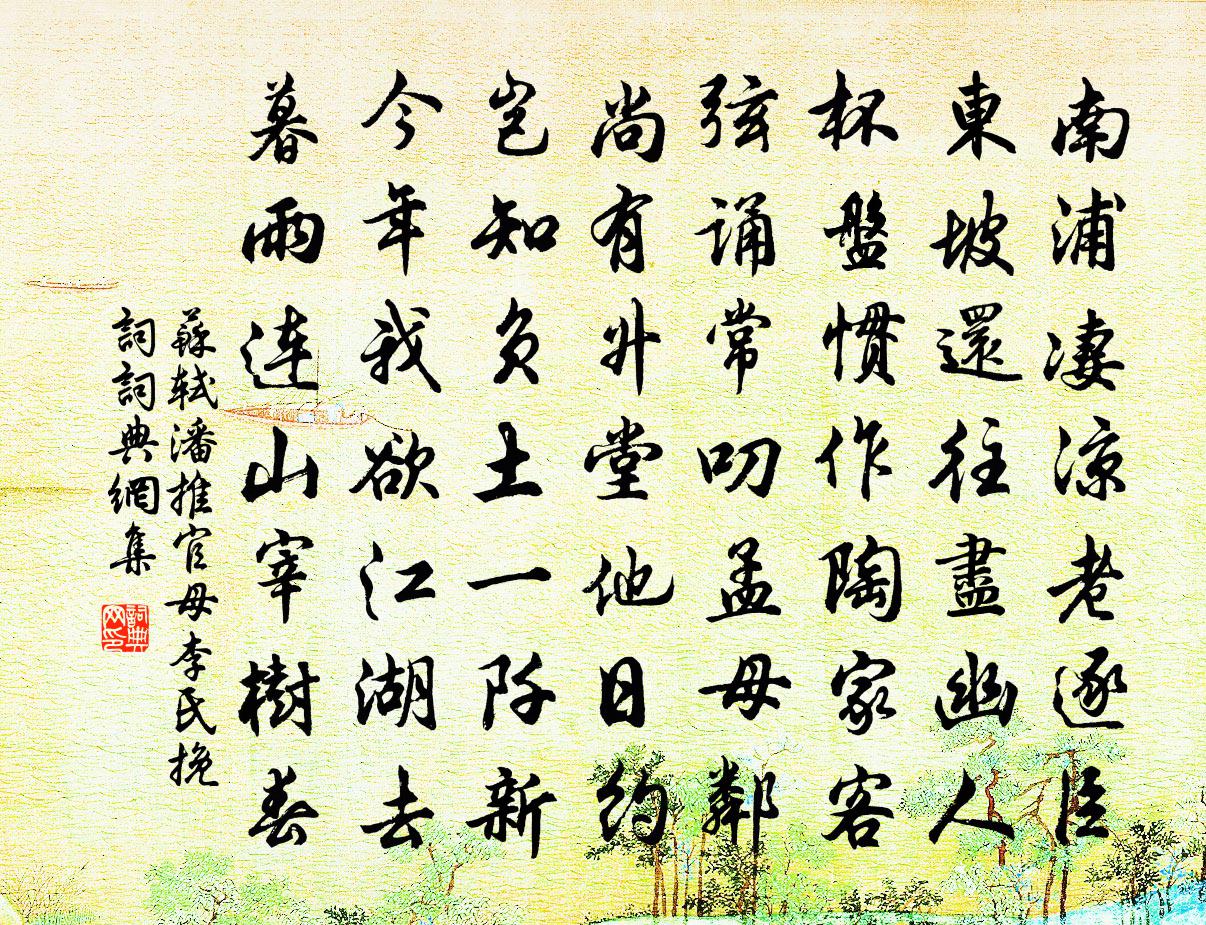 南浦凄涼老逐臣
東坡還往盡幽人
杯盤慣作陶家客
弦誦常叨孟母鄰
尚有升堂他日約
豈知負土一阡新
今年我欲江湖去
暮雨連山宰樹春
蘇軾潘推官母李氏挽
詞詞典網集
詞典
网印